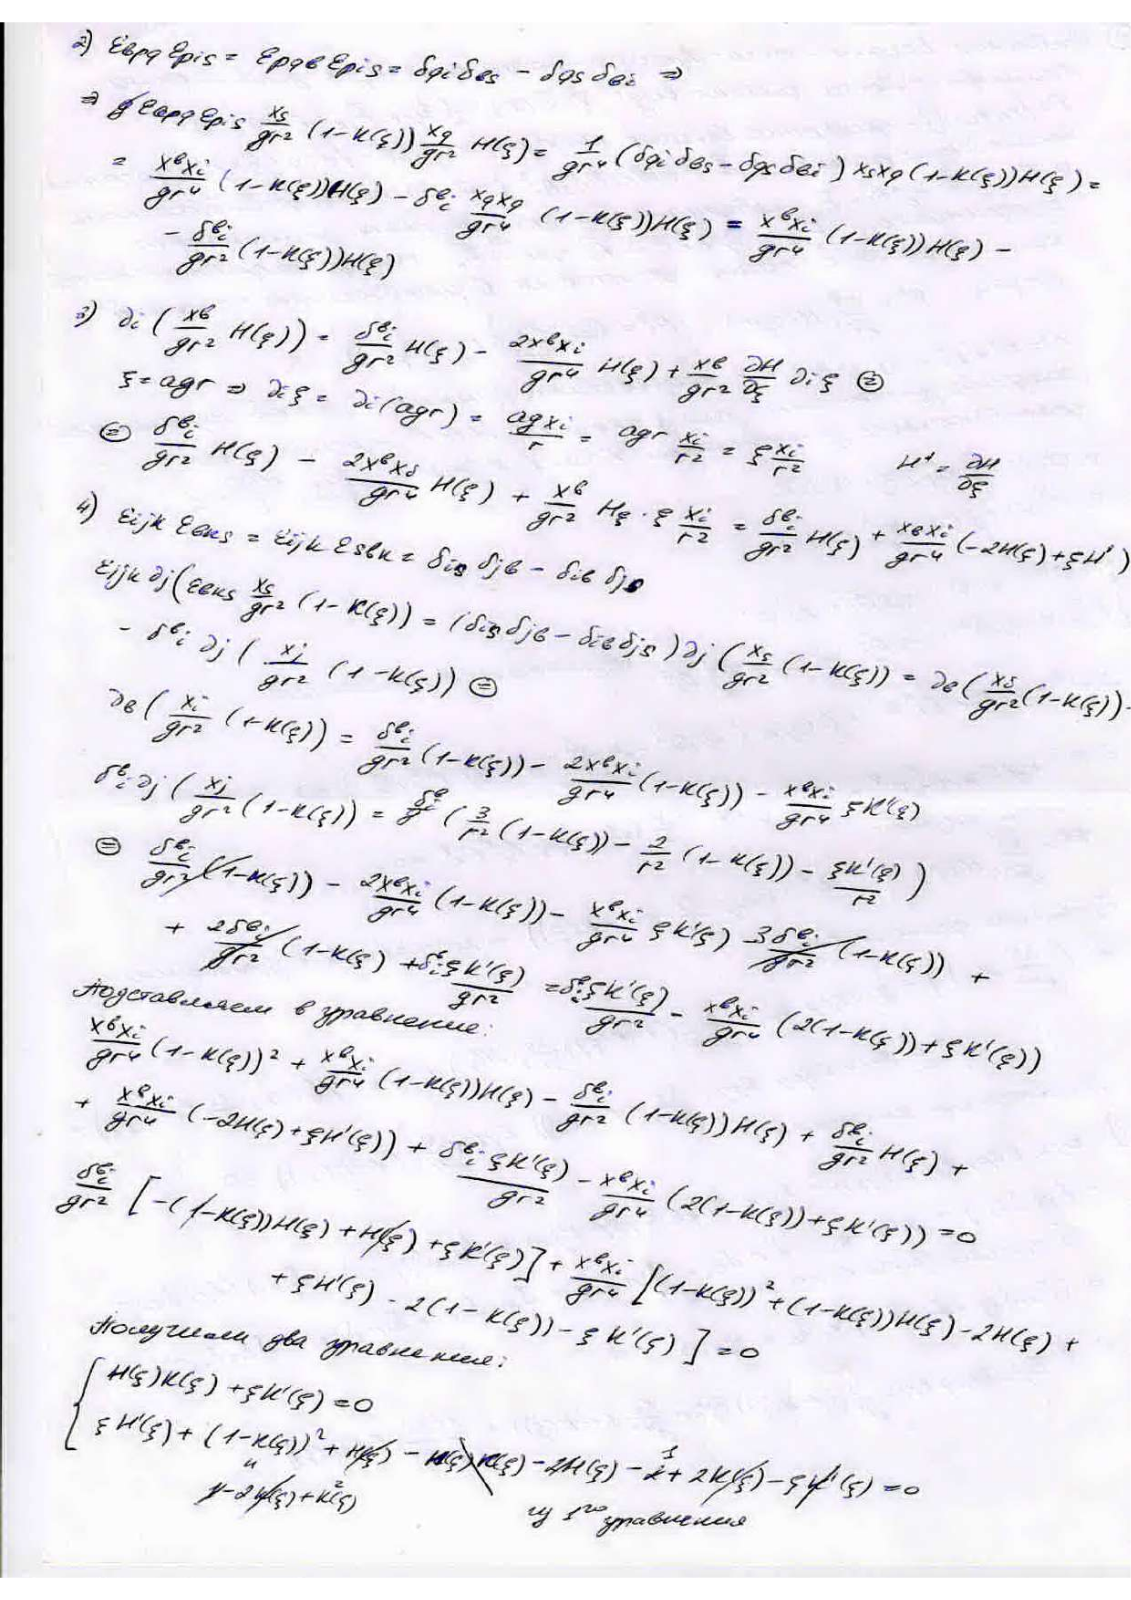 2) εbpq εpis = εpqb εpis = δqi δbs − δqs δbi ⇒
⇒ g εbpq εpis xs/gr² (1−K(ξ)) xq/gr² H(ξ) = 1/gr⁴ (δqi δbs − δqs δbi) xs xq (1−K(ξ)) H(ξ) =
= x^b xi/gr⁴ (1−K(ξ))H(ξ) − δ^b i xq xq/gr⁴ (1−K(ξ))H(ξ) = x^b xi/gr⁴ (1−K(ξ))H(ξ) −
− δ^b i/gr² (1−K(ξ))H(ξ)
3) ∂i (x^b/gr² H(ξ)) = δ^b i/gr² H(ξ) − 2x^b xi/gr⁴ H(ξ) + x^b/gr² ∂H/∂ξ ∂iξ ⊜
ξ = agr ⇒ ∂iξ = ∂i(agr) = ag xi/r = agr xi/r² = ξ xi/r² H' = ∂H/∂ξ
⊜ δ^b i/gr² H(ξ) − 2x^b xδ/gr⁴ H(ξ) + x^b/gr² Hξ · ξ xi/r² = δ^b i/gr² H(ξ) + xb xi/gr⁴ (−2H(ξ) + ξH')
4) εijk εbks = εijk εsbk = δis δjb − δib δjs
εijk ∂j(εbks xs/gr² (1−K(ξ)) = (δis δjb − δib δjs) ∂j (xs/gr² (1−K(ξ)) = ∂b (xδ/gr² (1−K(ξ)) −
− δ^b i ∂j (xj/gr² (1−K(ξ)) ⊜
∂b (xi/gr² (1−K(ξ)) = δ^b i/gr² (1−K(ξ)) − 2x^b xi/gr⁴ (1−K(ξ)) − x^b xi/gr⁴ ξK'(ξ)
δ^b i ∂j (xj/gr² (1−K(ξ)) = δ^b i/g (3/r² (1−K(ξ)) − 2/r² (1−K(ξ)) − ξK'(ξ)/r²)
⊜ δ^b i/gr² (1−K(ξ)) − 2x^b xi/gr⁴ (1−K(ξ)) − x^b xi/gr⁴ ξK'(ξ) 3δ^b i/gr² (1−K(ξ)) +
+ 2δ^b i/gr² (1−K(ξ) + δ^b i ξK'(ξ)/gr² = δ^b i ξK'(ξ)/gr² − x^b xi/gr⁴ (2(1−K(ξ)) + ξK'(ξ))
Подставляем в уравнение:
x^b xi/gr⁴ (1−K(ξ))² + x^b xi/gr⁴ (1−K(ξ))H(ξ) − δ^b i/gr² (1−K(ξ))H(ξ) + δ^b i/gr² H(ξ) +
+ x^b xi/gr⁴ (−2H(ξ) + ξH'(ξ)) + δ^b i ξK'(ξ)/gr² − x^b xi/gr⁴ (2(1−K(ξ)) + ξK'(ξ)) = 0
δ^b i/gr² [−(1−K(ξ))H(ξ) + H(ξ) + ξK'(ξ)] + x^b xi/gr⁴ [(1−K(ξ))² + (1−K(ξ))H(ξ) − 2H(ξ) +
+ ξH'(ξ) − 2(1−K(ξ)) − ξK'(ξ)] = 0
Получили два уравнения:
{ H(ξ)K(ξ) + ξK'(ξ) = 0
ξH'(ξ) + (1−K(ξ))² + H(ξ) − H(ξ)K(ξ) − 2H(ξ) − 2 + 2K(ξ) − ξK'(ξ) = 0
1−2K(ξ)+K²(ξ) из 1го уравнения